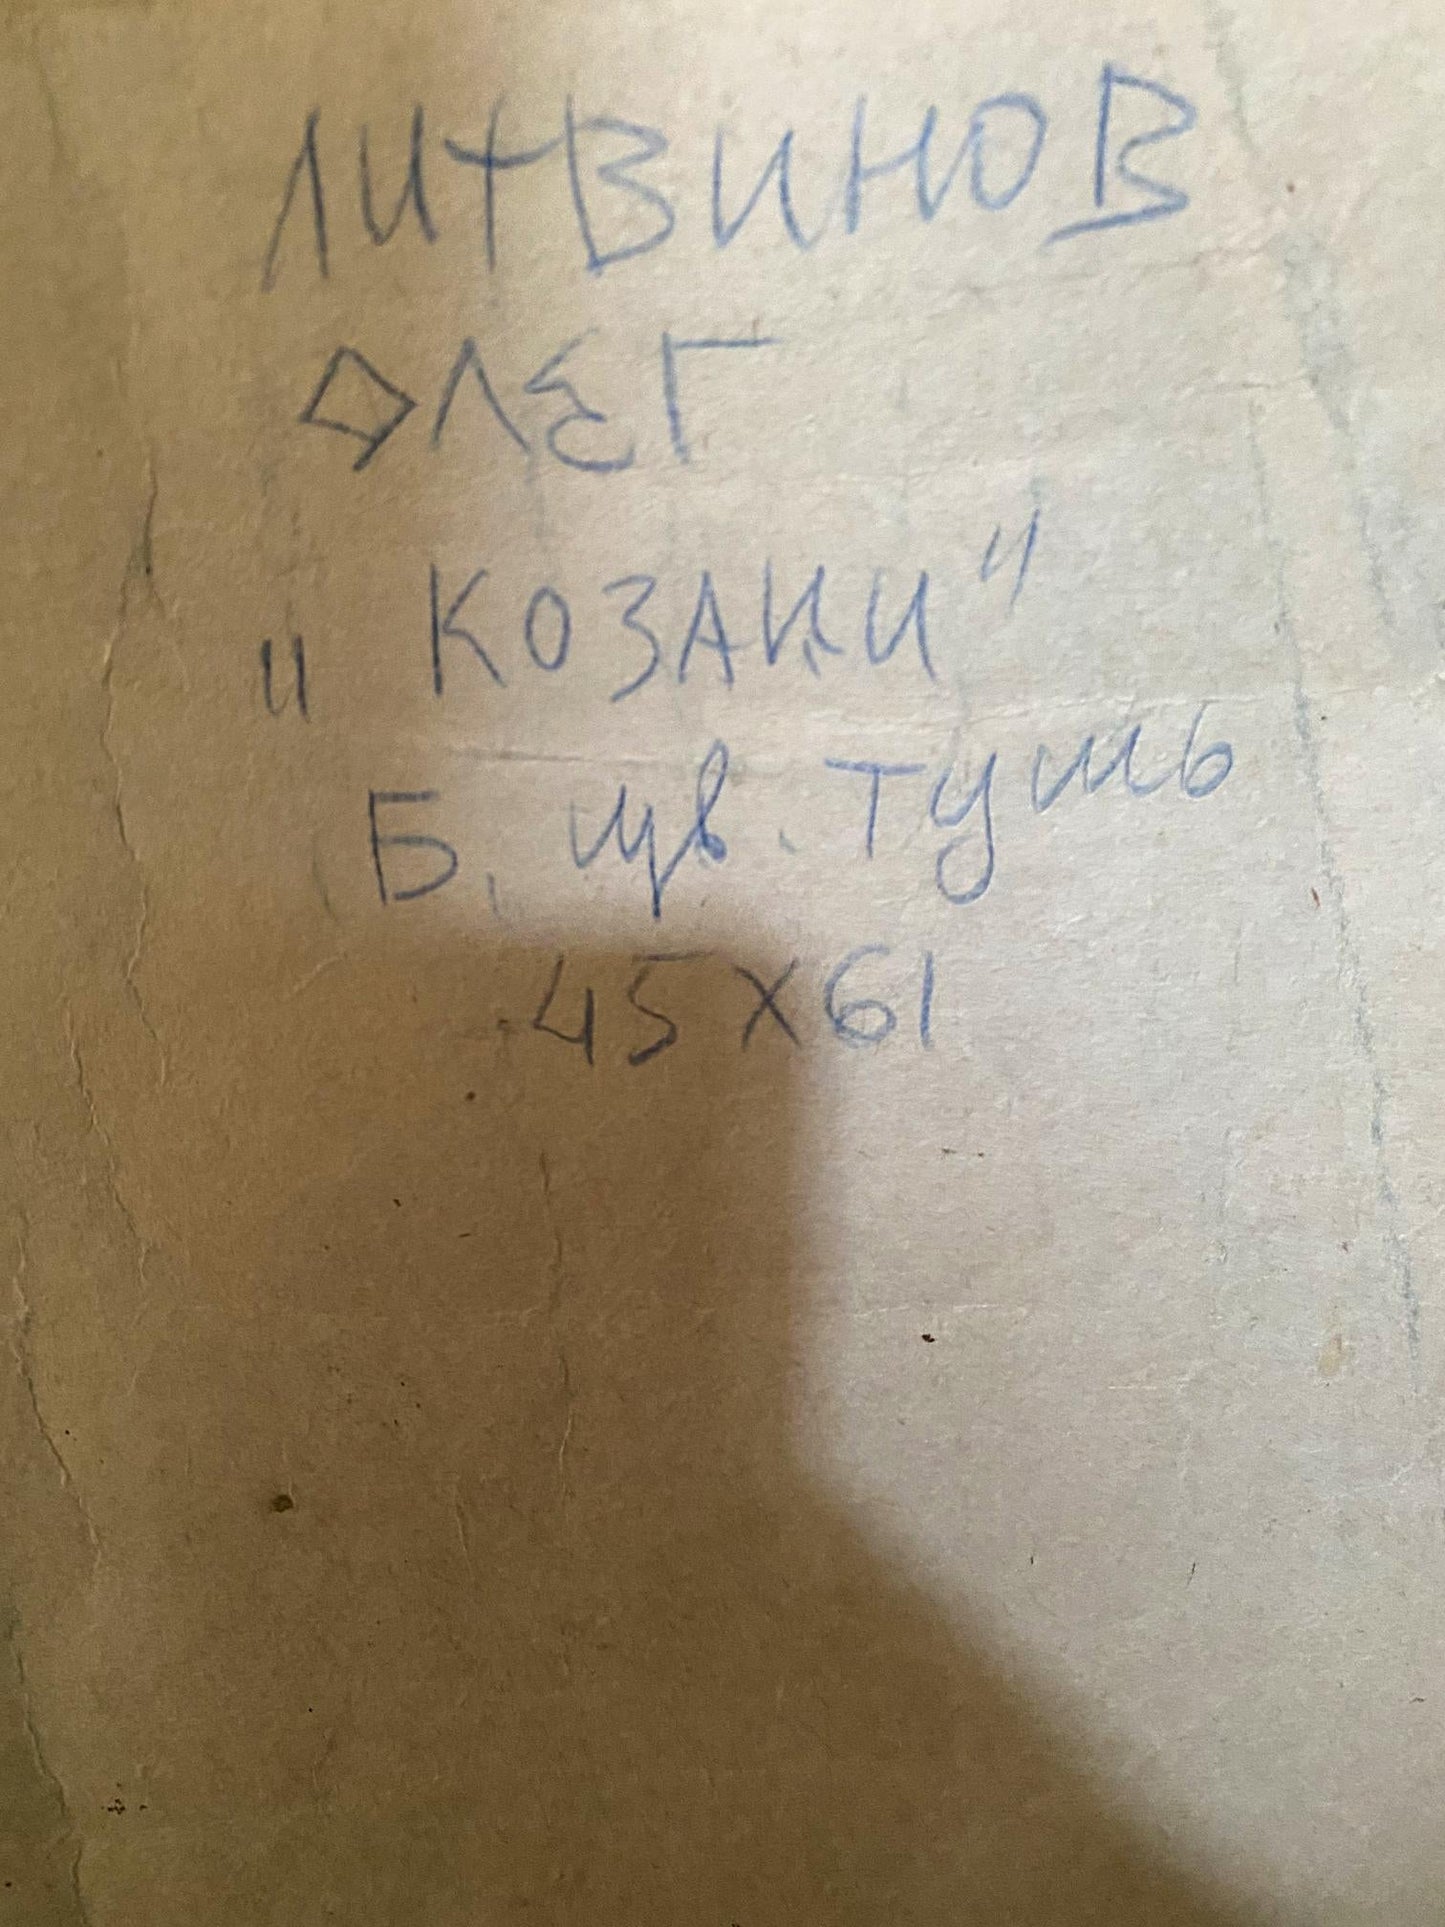 ЛИТВИНОВ
ОЛЕГ
„ КОЗАКИ "
Б. цв. тушь
45х61